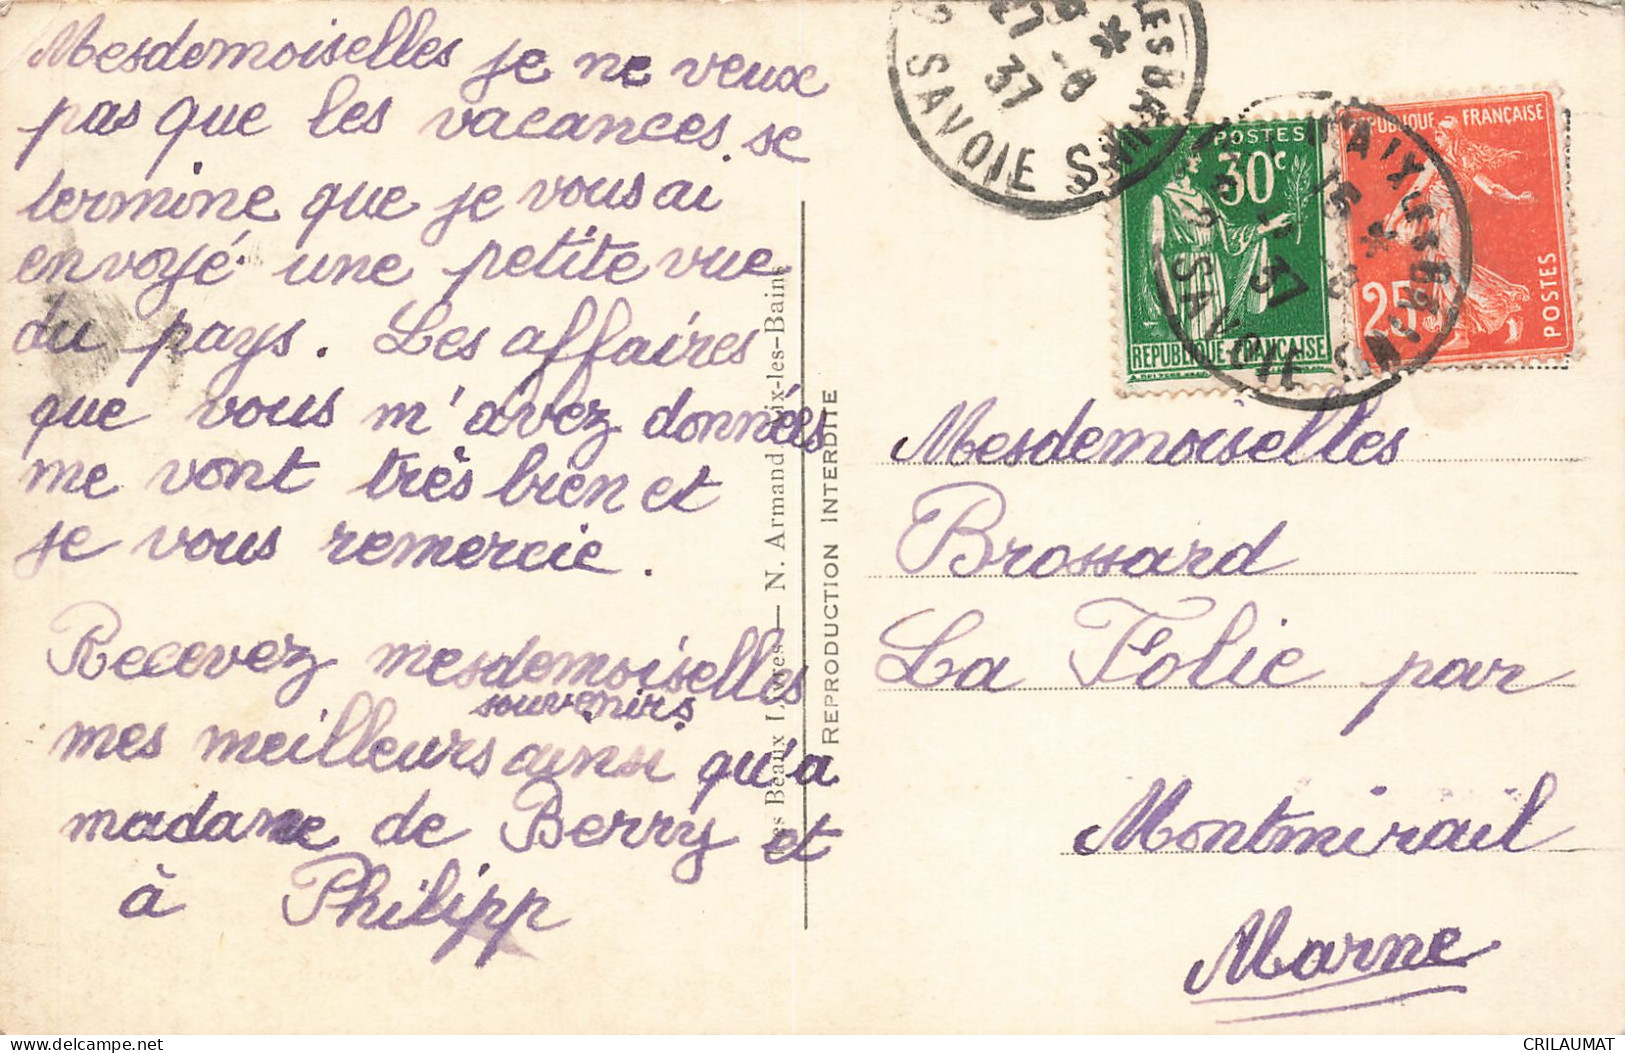 Mesdemoiselles je ne veux
pas que les vacances se
termine que je vous ai
envoyé une petite vue
du pays. Les affaires
que vous m'avez données
me vont très bien et
je vous remercie.
Recevez mesdemoiselles
souvenirs
mes meilleurs ainsi qu'a
madame de Berry et
à Philipp
Les Beaux Livres — N. Armand Aix-les-Bains
REPRODUCTION INTERDITE
LES BAINS
37
SAVOIE
POSTES
30c
REPUBLIQUE FRANÇAISE
AIX LES BAINS
37
SAVOIE
REPUBLIQUE FRANÇAISE
25
POSTES
Mesdemoiselles
Brossard
La Folie par
Montmirail
Marne
delcampe.net
CRILAUMAT